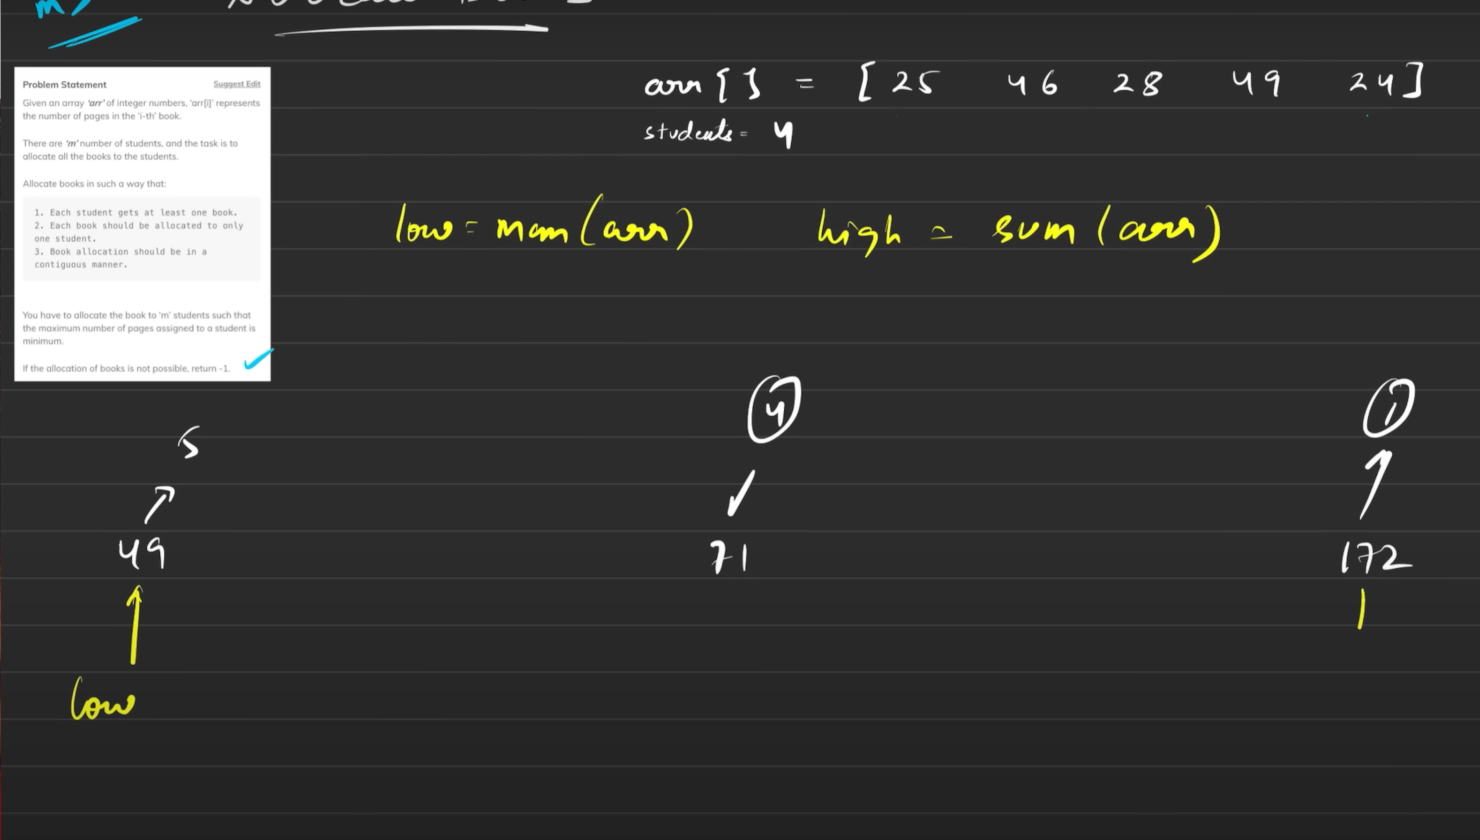 m)
Problem Statement Suggest Edit
Given an array 'arr' of integer numbers, 'arr[i]' represents
the number of pages in the 'i-th' book.
There are 'm' number of students, and the task is to
allocate all the books to the students.
Allocate books in such a way that:
1. Each student gets at least one book.
2. Each book should be allocated to only
one student.
3. Book allocation should be in a
contiguous manner.
You have to allocate the book to 'm' students such that
the maximum number of pages assigned to a student is
minimum.
If the allocation of books is not possible, return -1.
arr [ ] = [ 25 46 28 49 24 ]
students = 4
low = max (arr) high = sum (arr)
5 4 1
49 71 172
low